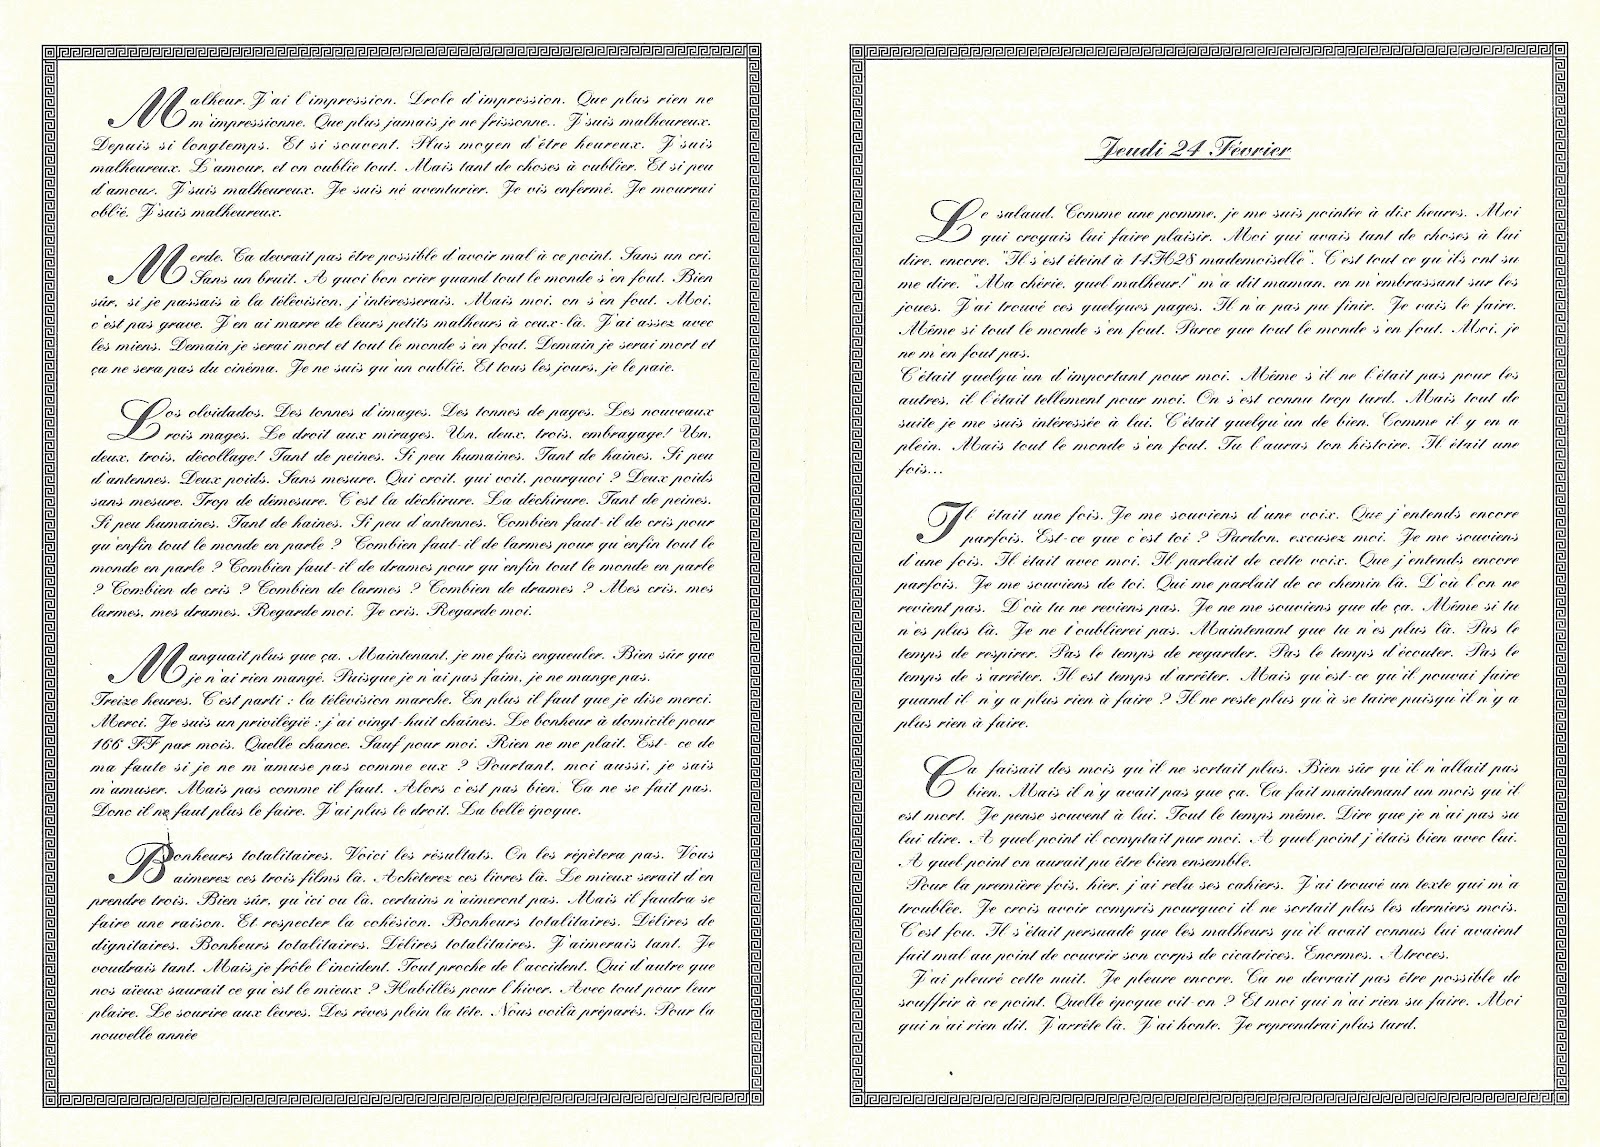 Malheur. J'ai l'impression. Drole d'impression. Que plus rien ne
m'impressionne. Que plus jamais je ne frissonne.. J'suis malheureux.
Depuis si longtemps. Et si souvent. Plus moyen d'être heureux. J'suis
malheureux. L'amour, et on oublie tout. Mais tant de choses à oublier. Et si peu
d'amour. J'suis malheureux. Je suis né aventurier. Je vis enfermé. Je mourrai
oblié. J'suis malheureux.
Merde. Ca devrait pas être possible d'avoir mal à ce point. Sans un cri.
Sans un bruit. A quoi bon crier quand tout le monde s'en fout. Bien
sûr, si je passais à la télévision, j'intéresserais. Mais moi, on s'en fout. Moi,
c'est pas grave. J'en ai marre de leurs petits malheurs à ceux-là. J'ai assez avec
les miens. Demain je serai mort et tout le monde s'en fout. Demain je serai mort et
ça ne sera pas du cinéma. Je ne suis qu'un oublié. Et tous les jours, je le paie.
Los olvidados. Des tonnes d'images. Des tonnes de pages. Les nouveaux
rois mages. Le droit aux mirages. Un, deux, trois, embrayage! Un,
deux, trois, décollage! Tant de peines. Si peu humaines. Tant de haines. Si peu
d'antennes. Deux poids. Sans mesure. Qui croit, qui voit, pourquoi ? Deux poids
sans mesure. Trop de démesure. C'est la déchirure. La déchirure. Tant de peines.
Si peu humaines. Tant de haines. Si peu d'antennes. Combien faut-il de cris pour
qu'enfin tout le monde en parle ? Combien faut-il de larmes pour qu'enfin tout le
monde en parle ? Combien faut-il de drames pour qu'enfin tout le monde en parle
? Combien de cris ? Combien de larmes ? Combien de drames ? Mes cris, mes
larmes, mes drames. Regarde moi. Je cris. Regarde moi.
Manquait plus que ça. Maintenant, je me fais engueuler. Bien sûr que
je n'ai rien mangé. Puisque je n'ai pas faim, je ne mange pas.
Treize heures. C'est parti : la télévision marche. En plus il faut que je dise merci.
Merci. Je suis un privilégié : j'ai vingt-huit chaines. Le bonheur à domicile pour
166 FF par mois. Quelle chance. Sauf pour moi. Rien ne me plait. Est- ce de
ma faute si je ne m'amuse pas comme eux ? Pourtant, moi aussi, je sais
m'amuser. Mais pas comme il faut. Alors c'est pas bien. Ca ne se fait pas.
Donc il ne faut plus le faire. J'ai plus le droit. La belle époque.
Bonheurs totalitaires. Voici les résultats. On les répètera pas. Vous
aimerez ces trois films là. Achèterez ces livres là. Le mieux serait d'en
prendre trois. Bien sûr, qu'ici ou là, certains n'aimeront pas. Mais il faudra se
faire une raison. Et respecter la cohésion. Bonheurs totalitaires. Délires de
dignitaires. Bonheurs totalitaires. Délires totalitaires. J'aimerais tant. Je
voudrais tant. Mais je frôle l'incident. Tout proche de l'accident. Qui d'autre que
nos aïeux saurait ce qu'est le mieux ? Habillés pour l'hiver. Avec tout pour leur
plaire. Le sourire aux lèvres. Des rêves plein la tête. Nous voilà préparés. Pour la
nouvelle année
Jeudi 24 Février
Le salaud. Comme une pomme, je me suis pointée à dix heures. Moi
qui croyais lui faire plaisir. Moi qui avais tant de choses à lui
dire, encore. "Il s'est éteint à 14H28 mademoiselle". C'est tout ce qu'ils ont su
me dire. "Ma chérie, quel malheur!" m'a dit maman, en m'embrassant sur les
joues. J'ai trouvé ces quelques pages. Il n'a pas pu finir. Je vais le faire.
Même si tout le monde s'en fout. Parce que tout le monde s'en fout. Moi, je
ne m'en fout pas.
C'était quelqu'un d'important pour moi. Même s'il ne l'était pas pour les
autres, il l'était tellement pour moi. On s'est connu trop tard. Mais tout de
suite je me suis intéressée à lui. C'était quelqu'un de bien. Comme il y en a
plein. Mais tout le monde s'en fout. Tu l'auras ton histoire. Il était une
fois...
Il était une fois. Je me souviens d'une voix. Que j'entends encore
parfois. Est-ce que c'est toi ? Pardon, excusez moi. Je me souviens
d'une fois. Il était avec moi. Il parlait de cette voix. Que j'entends encore
parfois. Je me souviens de toi. Qui me parlait de ce chemin là. D'où l'on ne
revient pas. D'où tu ne reviens pas. Je ne me souviens que de ça. Même si tu
n'es plus là. Je ne t'oublierei pas. Maintenant que tu n'es plus là. Pas le
temps de respirer. Pas le temps de regarder. Pas le temps d'écouter. Pas le
temps de s'arrêter. Il est temps d'arrêter. Mais qu'est-ce qu'il pouvai faire
quand il n'y a plus rien à faire ? Il ne reste plus qu'à se taire puisqu'il n'y a
plus rien à faire.
Ca faisait des mois qu'il ne sortait plus. Bien sûr qu'il n'allait pas
bien. Mais il n'y avait pas que ça. Ca fait maintenant un mois qu'il
est mort. Je pense souvent à lui. Tout le temps même. Dire que je n'ai pas su
lui dire. A quel point il comptait pur moi. A quel point j'étais bien avec lui.
A quel point on aurait pu être bien ensemble.
Pour la première fois, hier, j'ai relu ses cahiers. J'ai trouvé un texte qui m'a
troublée. Je crois avoir compris pourquoi il ne sortait plus les derniers mois.
C'est fou. Il s'était persuadé que les malheurs qu'il avait connus lui avaient
fait mal au point de couvrir son corps de cicatrices. Enormes. Atroces.
J'ai pleuré cette nuit. Je pleure encore. Ca ne devrait pas être possible de
souffrir à ce point. Quelle époque vit-on ? Et moi qui n'ai rien su faire. Moi
qui n'ai rien dit. J'arrête là. J'ai honte. Je reprendrai plus tard.